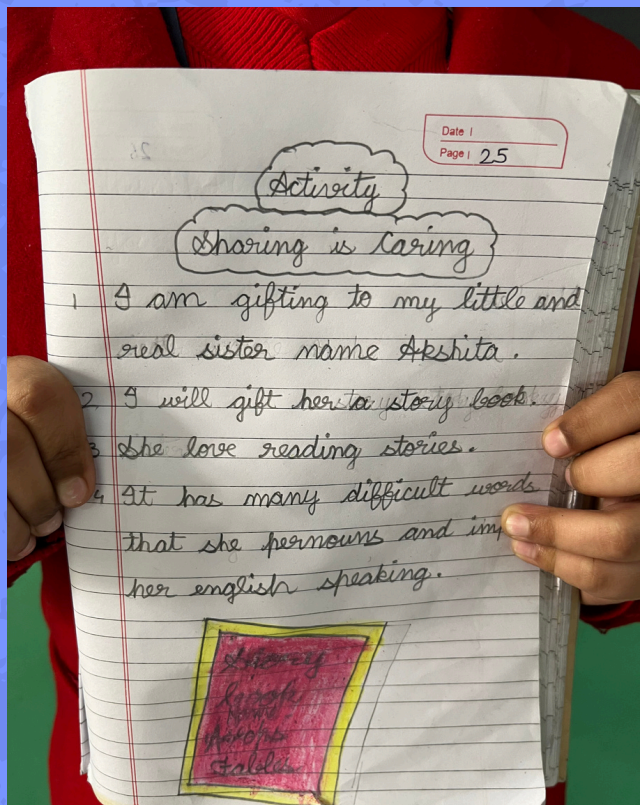 Date
Page 25
Activity
Sharing is Caring
1 I am gifting to my little and
real sister name Akshita.
2 I will gift her a story book.
3 She love reading stories.
4 It has many difficult words
that she pernouns and imp
her english speaking.
Story
Book